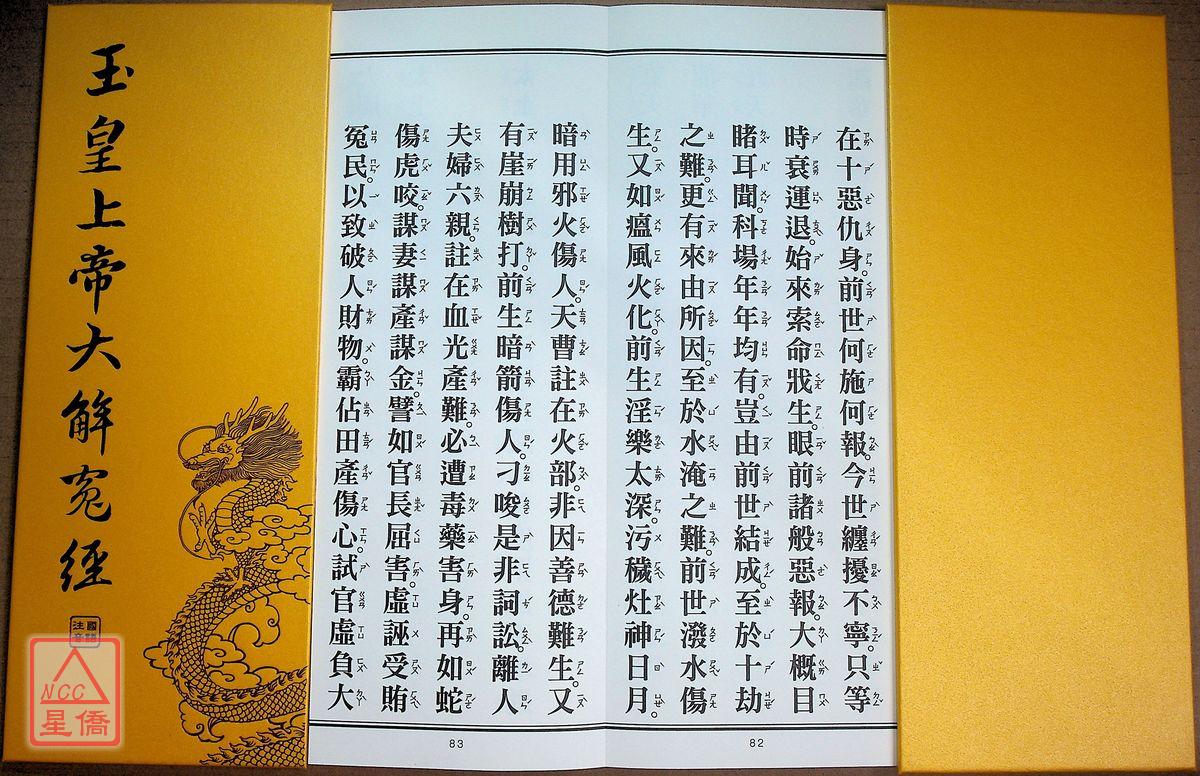 玉皇上帝大解寃經
國語注音
NCC
星僑
在十惡仇身。前世何施何報。今世纏擾不寧。只等
時衰運退。始來索命戕生。眼前諸般惡報。大概目
睹耳聞。科場年年均有。豈由前世結成。至於十劫
之難。更有來由所因。至於水淹之難。前世潑水傷
生。又如瘟風火化。前生淫樂太深。污穢灶神日月。
82
暗用邪火傷人。天曹註在火部。非因善德難生。又
有崖崩樹打。前生暗箭傷人。刁唆是非詞訟。離人
夫婦六親。註在血光產難。必遭毒藥害身。再如蛇
傷虎咬。謀妻謀產謀金。譬如官長屈害。虛誣受賄
冤民。以致破人財物。霸佔田產傷心。試官虛負大
83